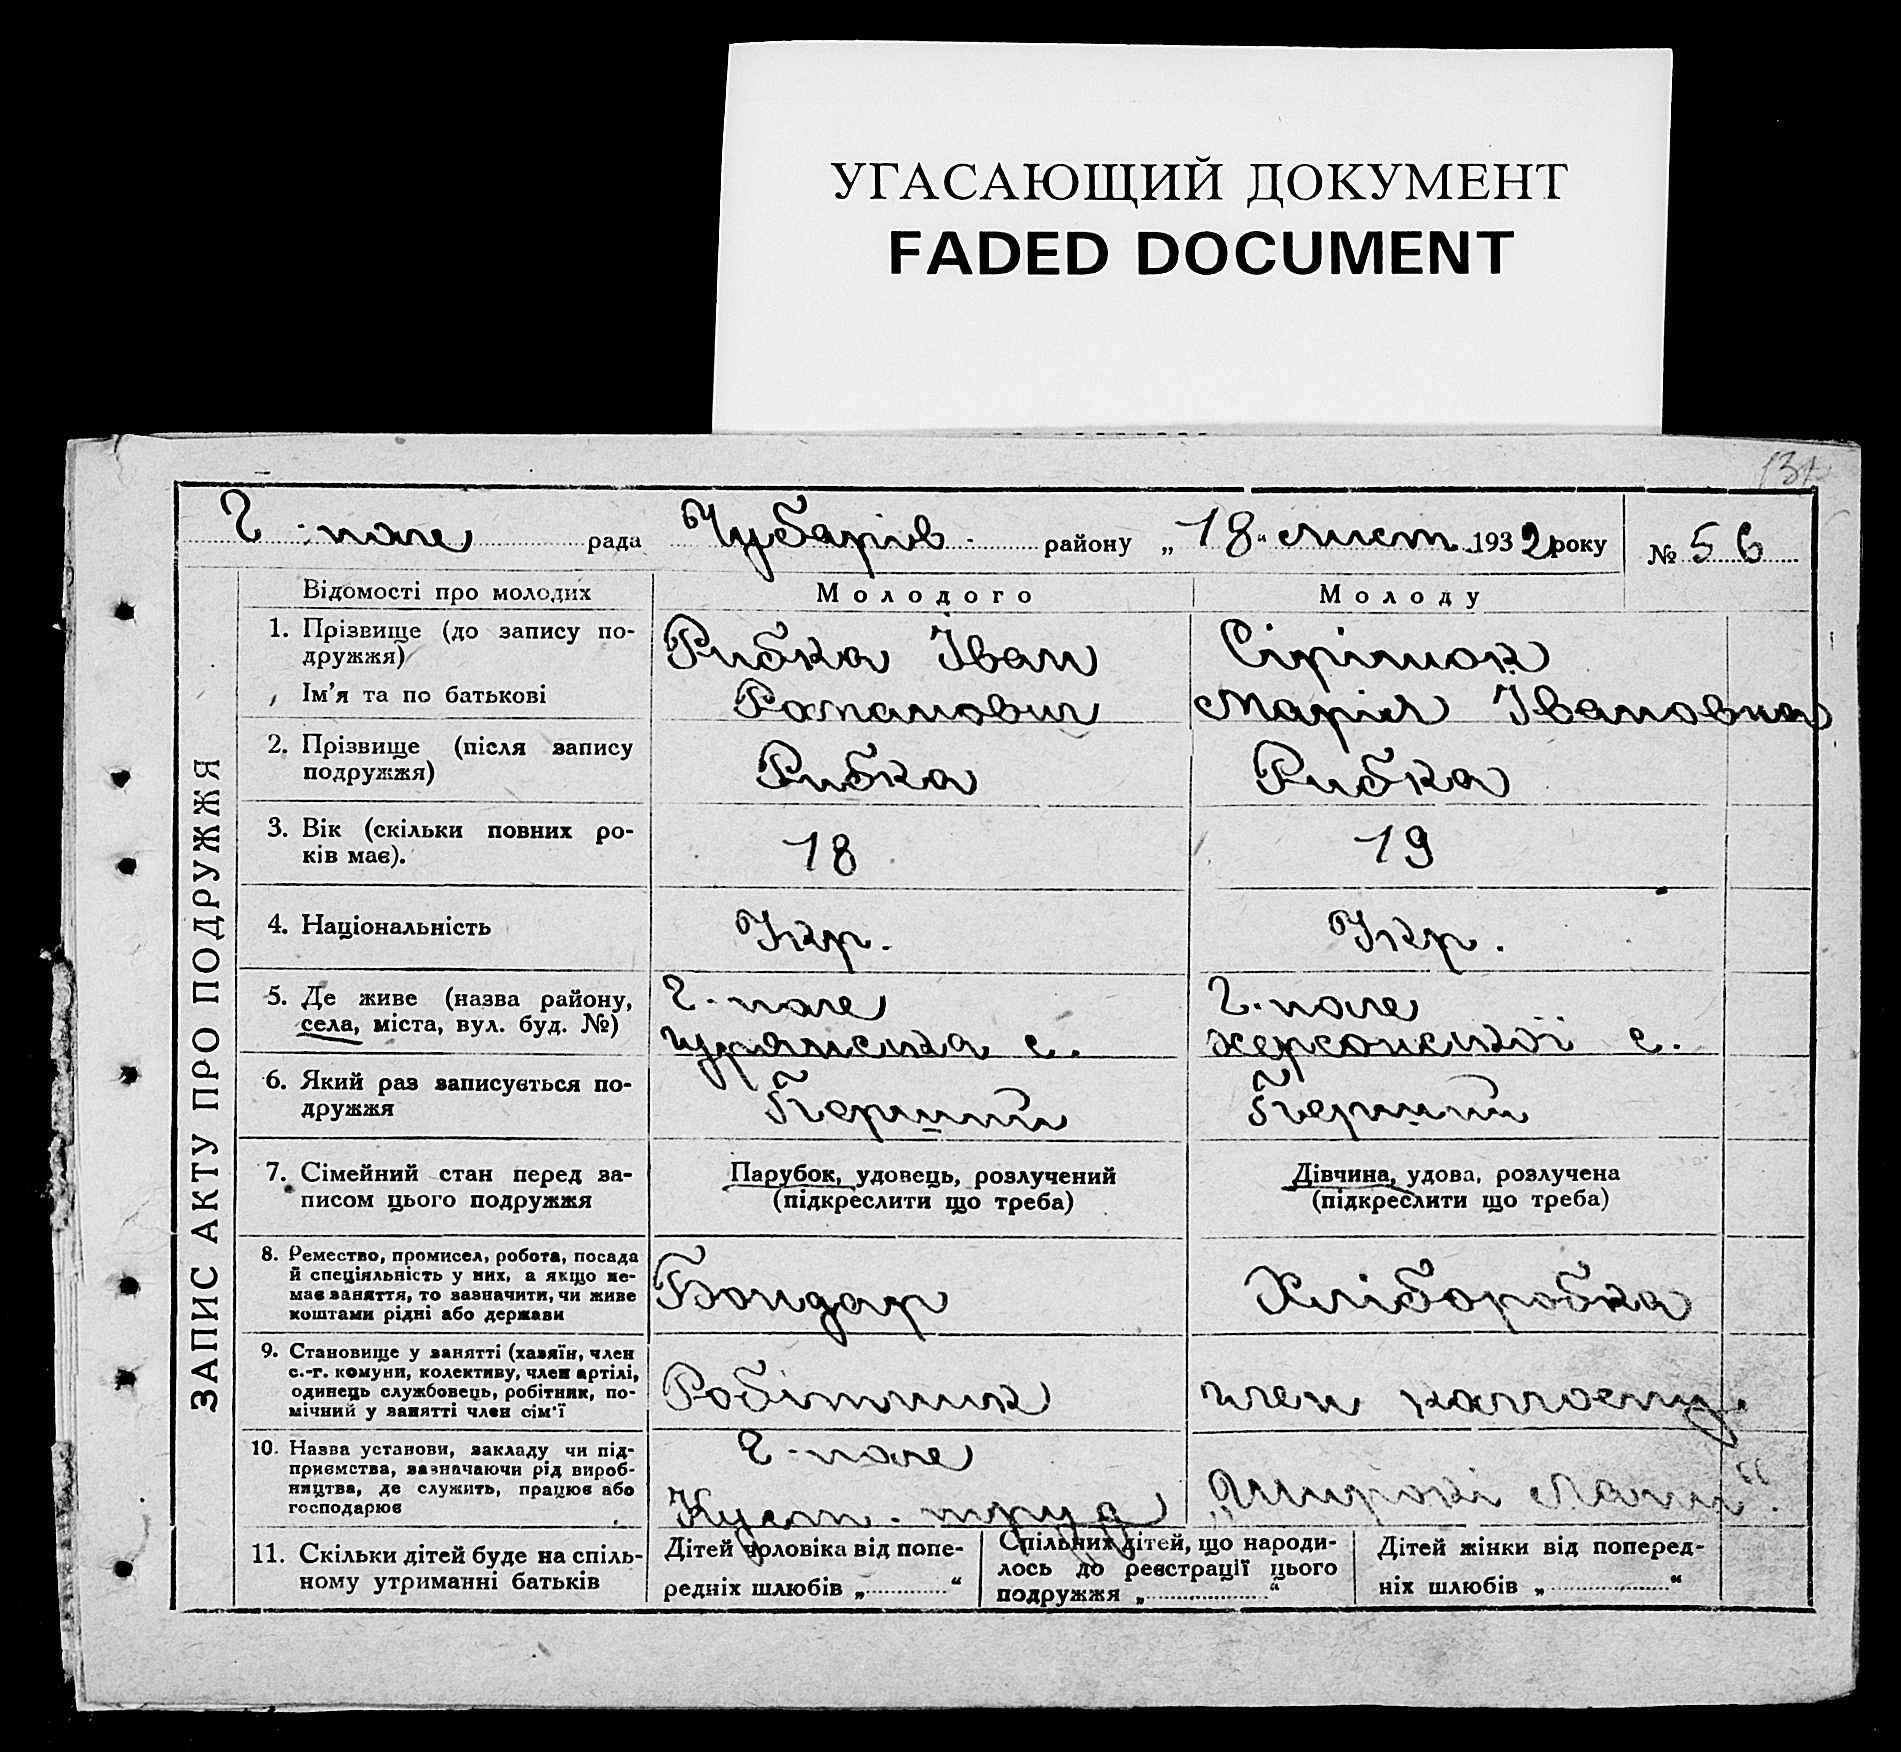 УГАСАЮЩИЙ ДОКУМЕНТ
FADED DOCUMENT
Г-поле рада Чубарів району „18“ лист. 1932 року № 56
ЗАПИС АКТУ ПРО ПОДРУЖЖЯ
Відомості про молодих Молодого Молоду
1. Прізвище (до запису по-
дружжя)
Рибка Іван Сірінок
Ім’я та по батькові Романович Марія Івановна
2. Прізвище (після запису
подружжя)
Рибка Рибка
3. Вік (скільки повних ро-
ків має).
18 19
4. Національність Укр. Укр.
5. Де живе (назва району,
села, міста, вул. буд. №)
Г-поле Г-поле
с. херсонської с.
6. Який раз записується по-
дружжя
Перший Перший
7. Сімейний стан перед за-
писом цього подружжя
Парубок, удовець, розлучений
(підкреслити що треба)
Дівчина, удова, розлучена
(підкреслити що треба)
8. Ремество, промисел, робота, посада
й спеціяльність у них, а якщо не-
має заняття, то зазначити, чи живе
коштами рідні або держави
Бондар Хліборобка
9. Становище у занятті (хазяїн, член
с.-г. комуни, колективу, член артілі,
одинець службовець, робітник, по-
мічний у занятті член сім’ї
Робітник член колгоспу.
10. Назва установи, закладу чи під-
приємства, зазначаючи рід вироб-
ництва, де служить, працює або
господарює
Г-поле
Куст. труд „Широкі Лани“.
11. Скільки дітей буде на спіль-
ному утриманні батьків
Дітей чоловіка від попе-
редніх шлюбів „ “
Спільних дітей, що народи-
лось до реєстрації цього
подружжя „ “
Дітей жінки від поперед-
ніх шлюбів „ “